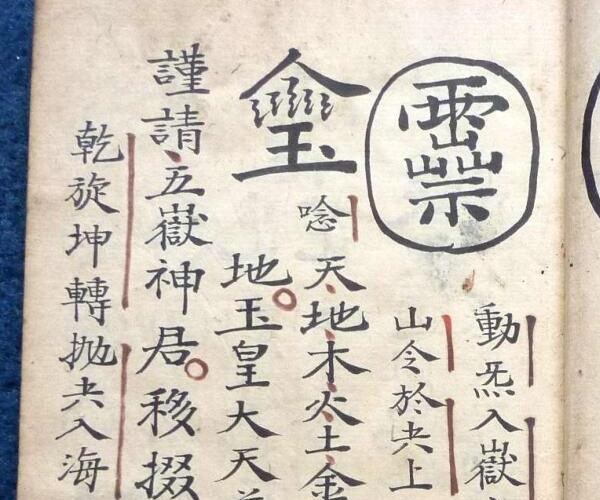 動炁入嶽
山令於上
唸天地木火土金
地玉皇大天
謹請五嶽神君移掇
乾旋坤轉抛入海